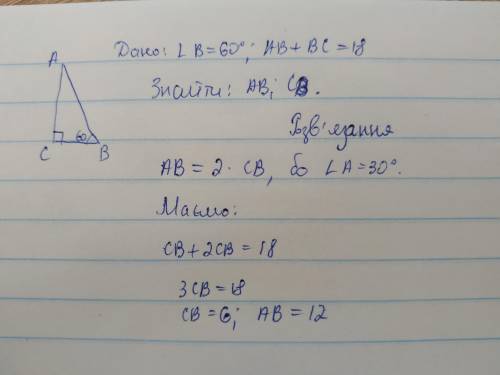 Дано: ∠B=60°; AB+BC=18
Знайти: AB; CB.
Розв'язання
AB = 2·CB, бо ∠A=30°.
Маємо:
CB+2CB=18
3CB=18
CB=6; AB=12
A
60
C
B